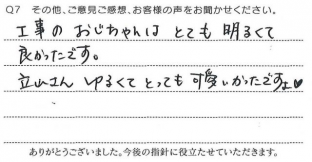 Q7 その他、ご意見ご感想、お客様の声をお聞かせください。
工事の おじちゃんは とても 明るくて
良かったです。
立山さん ゆるくて とっても 可愛いかったですよ♥
ありがとうございました。今後の指針に役立たせていただきます。